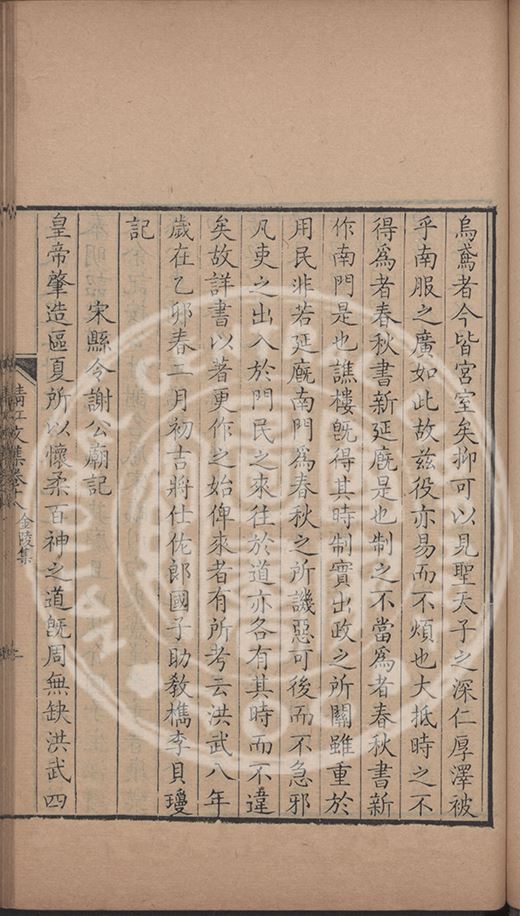 烏鳶者今皆宮室矣抑可以見聖天子之深仁厚澤被
乎南服之廣如此故茲役亦易而不煩也大抵時之不
得爲者春秋書新延廐是也制之不當爲者春秋書新
作南門是也譙樓旣得其時制實出政之所關雖重於
用民非若延廐南門爲春秋之所譏惡可後而不急邪
凡吏之出入於門民之來往於道亦各有其時而不違
矣故詳書以著更作之始俾來者有所考云洪武八年
歲在乙卯春二月初吉將仕佐郎國子助敎檇李貝瓊
記
宋縣令謝公廟記
皇帝肇造區夏所以懷柔百神之道旣周無缺洪武四
清江文集卷十八 金陵集